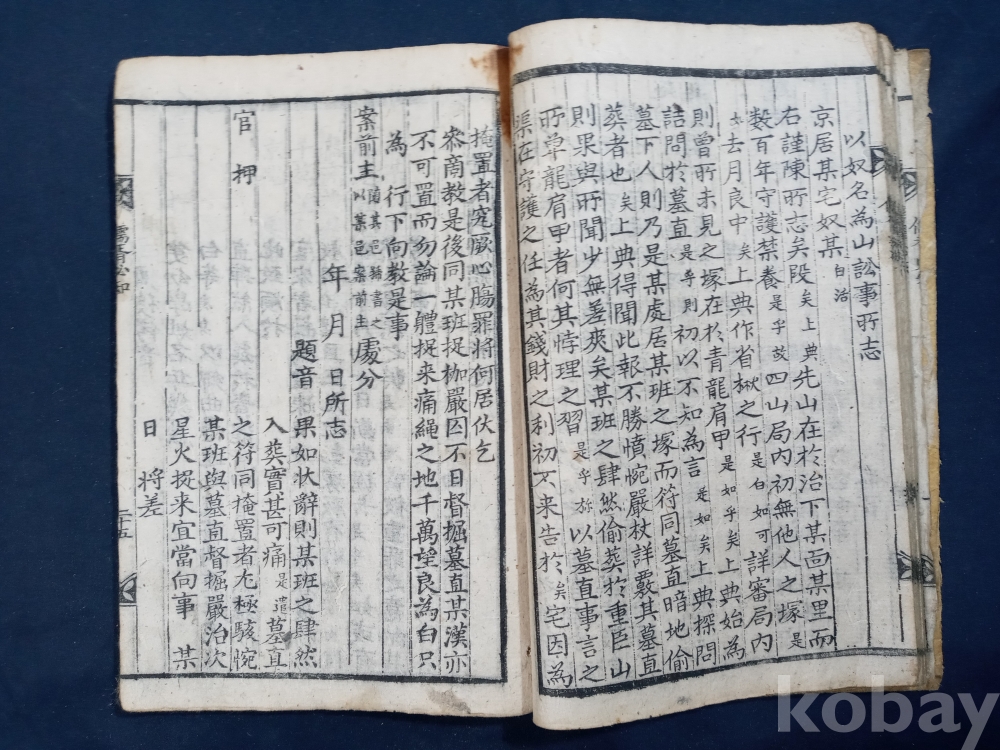 以奴名為山訟事所志
京居某宅奴某白活
右謹陳所志矣段矣上典先山在於治下某面某里而
數百年守護禁養是乎故四山局內初無他人之塚是
如去月良中矣上典作省楸之行是白如可詳審局內
則曾所未見之塚在於青龍肩甲是如乎矣上典始為
詰問於墓直是乎則初以不知為言是如矣上典探問
墓下人則乃是某處居某班之塚而符同墓直暗地偷
葬者也矣上典得聞此報不勝憤惋嚴杖詳覈其墓直
則果與所聞少無差爽矣某班之肆然偷葬於重臣山
所單龍肩甲者何其悖理之習是乎旀以墓直事言之
渠在守護之任為其錢財之利初不來告於矣宅因為
掩置者究厥心腸罪將何居伏乞
參商教是後同某班捉枷嚴囚不日督掘墓直某漢亦
不可置而勿論一體捉來痛繩之地千萬望良為白只
為 行下向教是事
案前主隨其邑號書之以某邑案前主處分
年 月 日所志
題音
果如狀辭則某班之肆然
入葬實甚可痛是遣墓直
之符同掩置者尤極駭惋
某班與墓直督掘嚴治次
星火捉來宜當向事 某
日 將差
官 押
儒胥必知
二十五
kobay